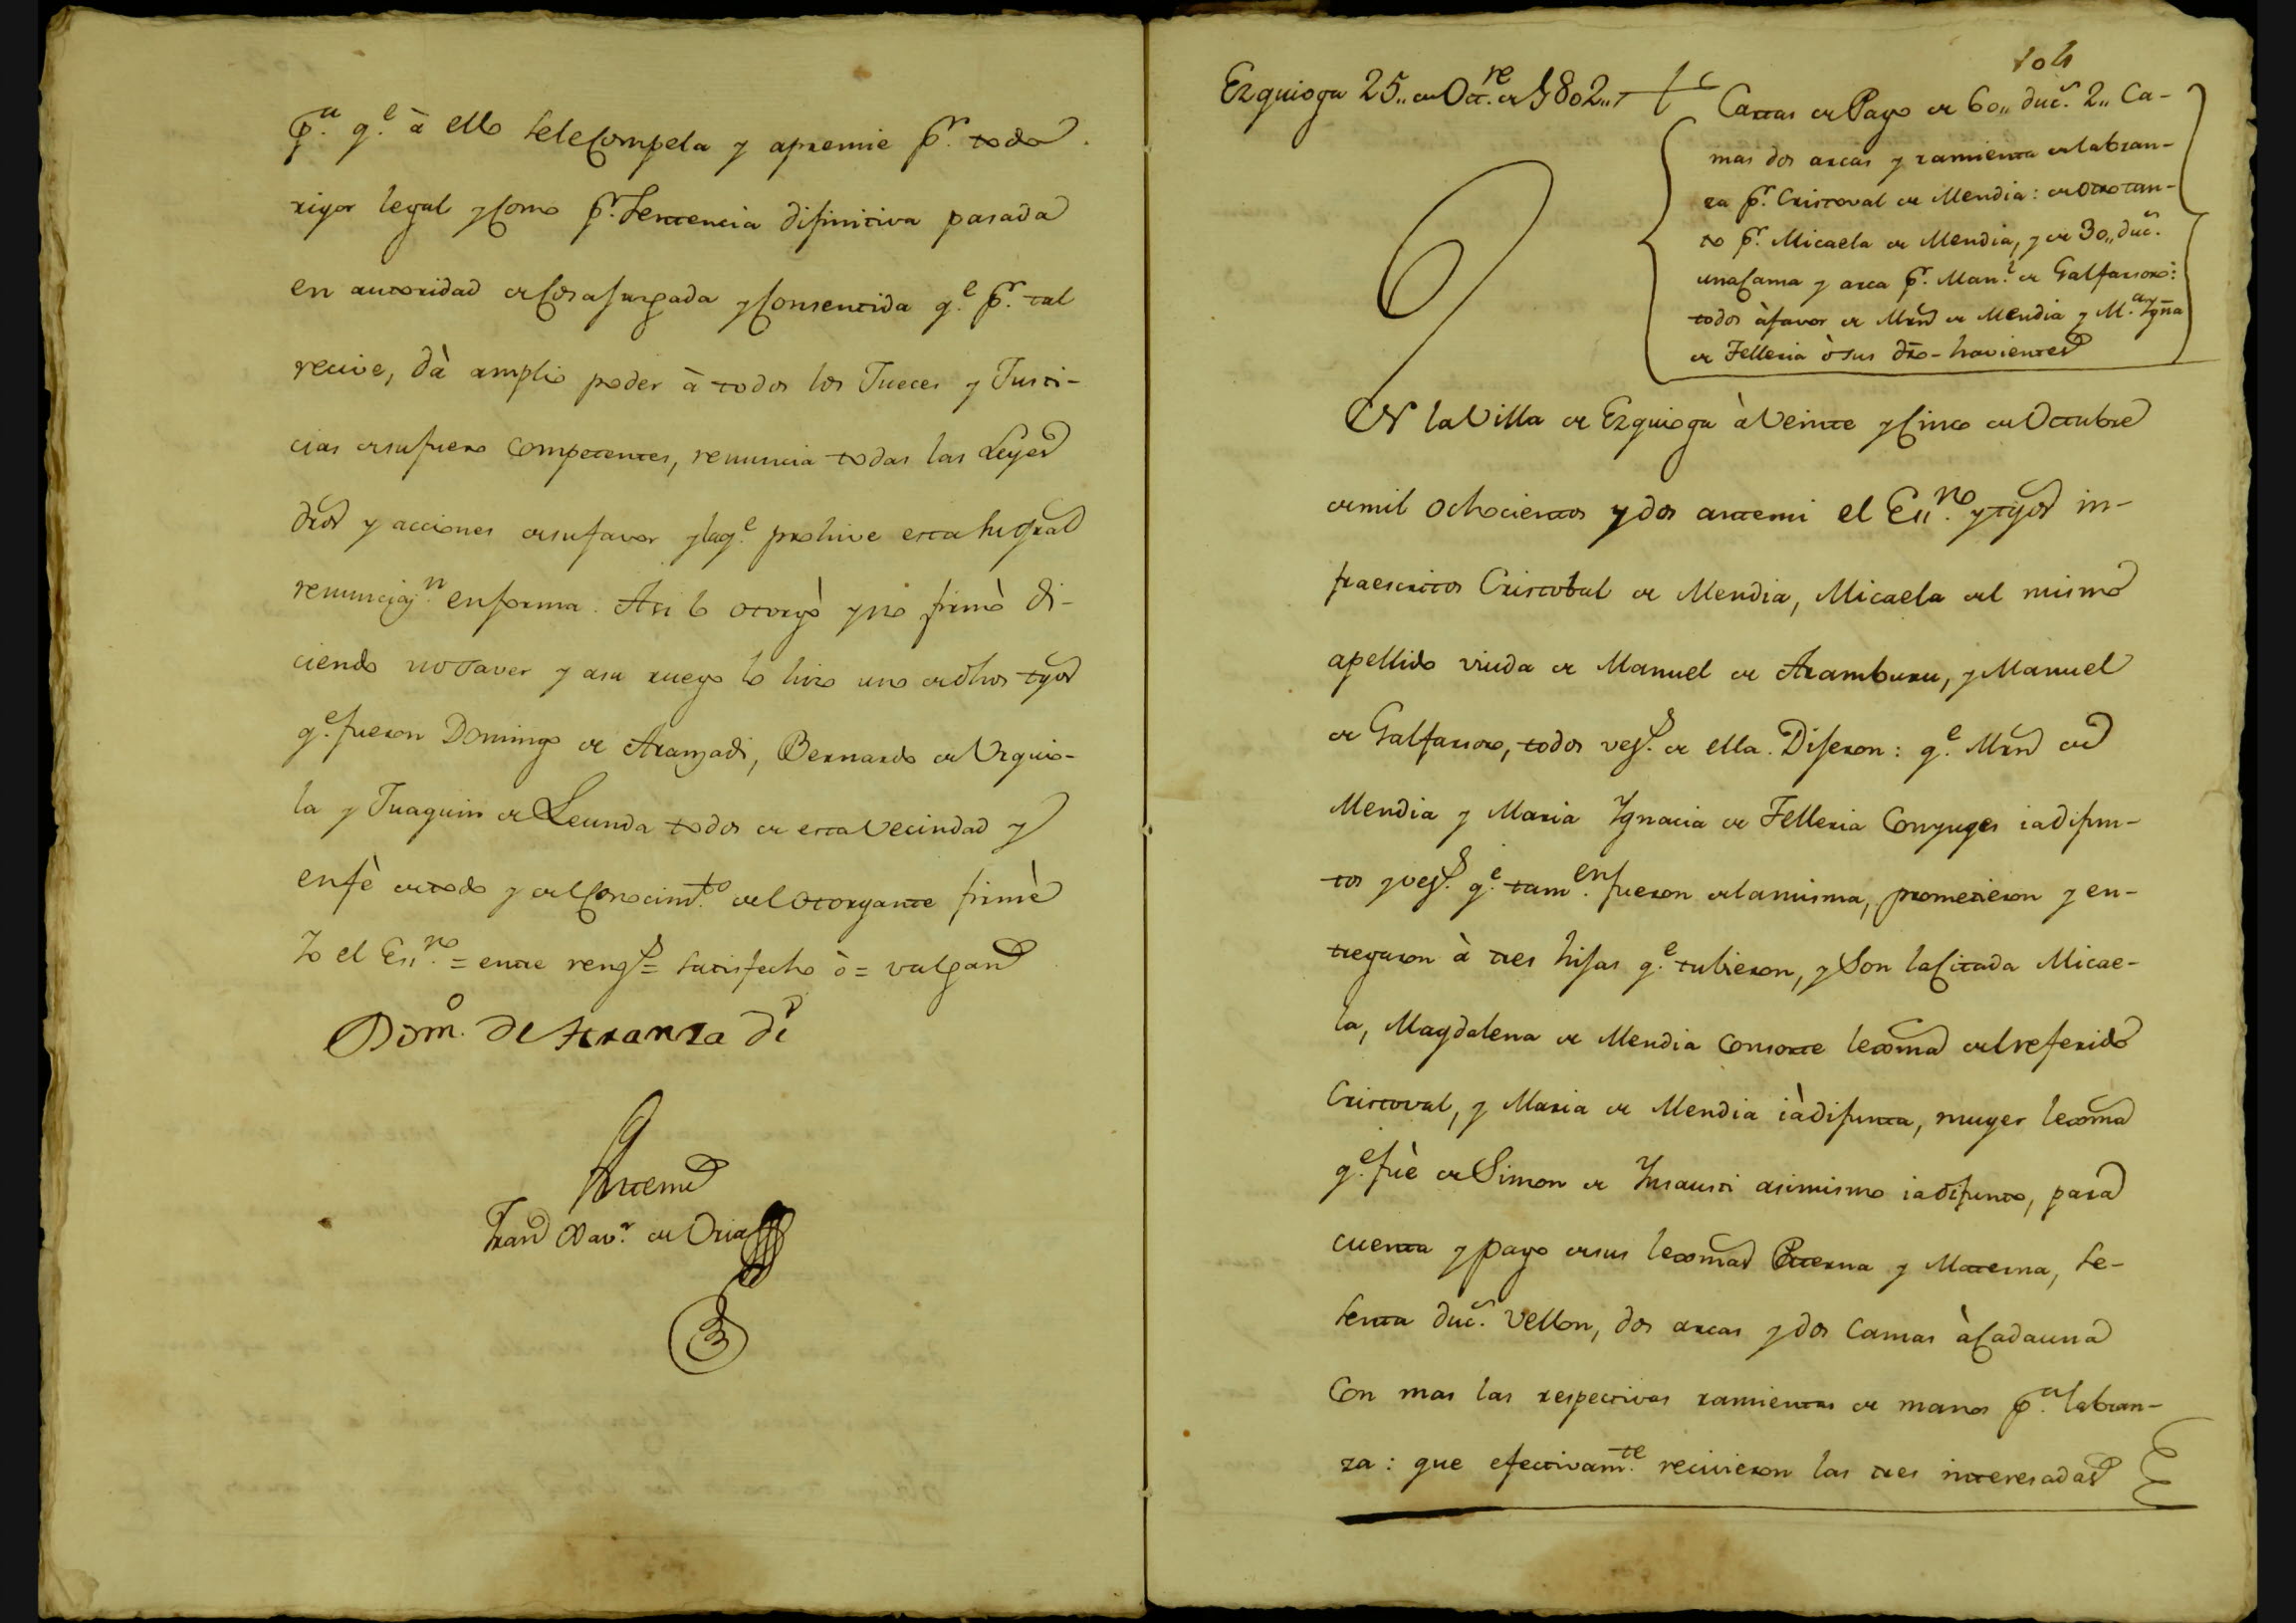 p.ª q.e à ello sele Compela y apremie p.r todo
rigor legal y Como p.r Sentencia difinitiva pasada
en autoridad de Cosa Jusgada y Consentida q.e p.r tal
recive, dà amplio poder à todos los Jueces y Justi-
cias de su fuero Competentes, renuncia todas las Leyes
dros y acciones de su favor y la q.e prohive esta su gral
renunciaz.n en forma. Asi lo otorgò y no firmò di-
ciendo no saver y a su ruego lo hizo uno de dhos tgos
q.e fueron Domingo de Aranzadi, Bernardo de Urquio-
la y Juaquin de Leunda todos de esta Vecindad y
en fè de todo y del Conocim.to del Otorgante firmè
Yo el Es.no = entre rengs = satisfecho ò = valgan
Dom.o de Aranzadi
Antemi
Fran Xav.r de Oria
104
Ezquioga 25,, de Oct.re de 1802,,
Cartas de Pago de 60,, duc.s 2,, Ca-
mas dos arcas y ramienta de labran-
za p.r Cristoval de Mendia: de otro tan-
to p.r Micaela de Mendia, y de 30,, duc.s
una Cama y arca p.r Man.l de Galfarsoro:
todos à favor de Mrn de Mendia y M.ª Ygna
de Telleria ò sus dro-havientes
EN la Villa de Ezquioga à Veinte y Cinco de Octubre
de mil ochocientos y dos antemi el Es.no y tgos in-
fraescritos Cristobal de Mendia, Micaela del mismo
apellido viuda de Manuel de Aramburu, y Manuel
de Galfarsoro, todos vez.s de ella. Dijeron: q.e Mrn de
Mendia y Maria Ygnacia de Telleria Conyuges ia difun-
tos y vez.s q.e tam.en fueron de la misma, prometieron y en-
tregaron à tres hijas q.e tubieron, y Son la Citada Micae-
la, Magdalena de Mendia Consorte lexma del referido
Cristoval, y Maria de Mendia ià difunta, muger lexma
q.e fuè de Simon de Ynsausti asimismo ia difunto, para
cuenta y pago de sus lexmas Paterna y Materna, se-
senta duc.s Vellon, dos arcas y dos Camas à Cada una
Con mas las respectivas ramientas de manos p.ª labran-
za: que efectivam.te recivieron las tres interesadas